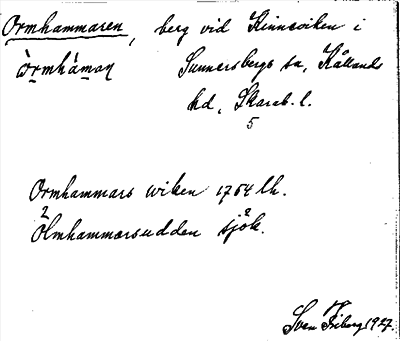 Ormhammaren, berg vid Kinneviken i
òrmhámaɳ Sunnersbergs sn, Kållands
hd, Skarab. l.
5
Ormhammars wiken 1764 lh.
2 2
Ölmhammarsudden sjök.
Sven Friberg 1927.